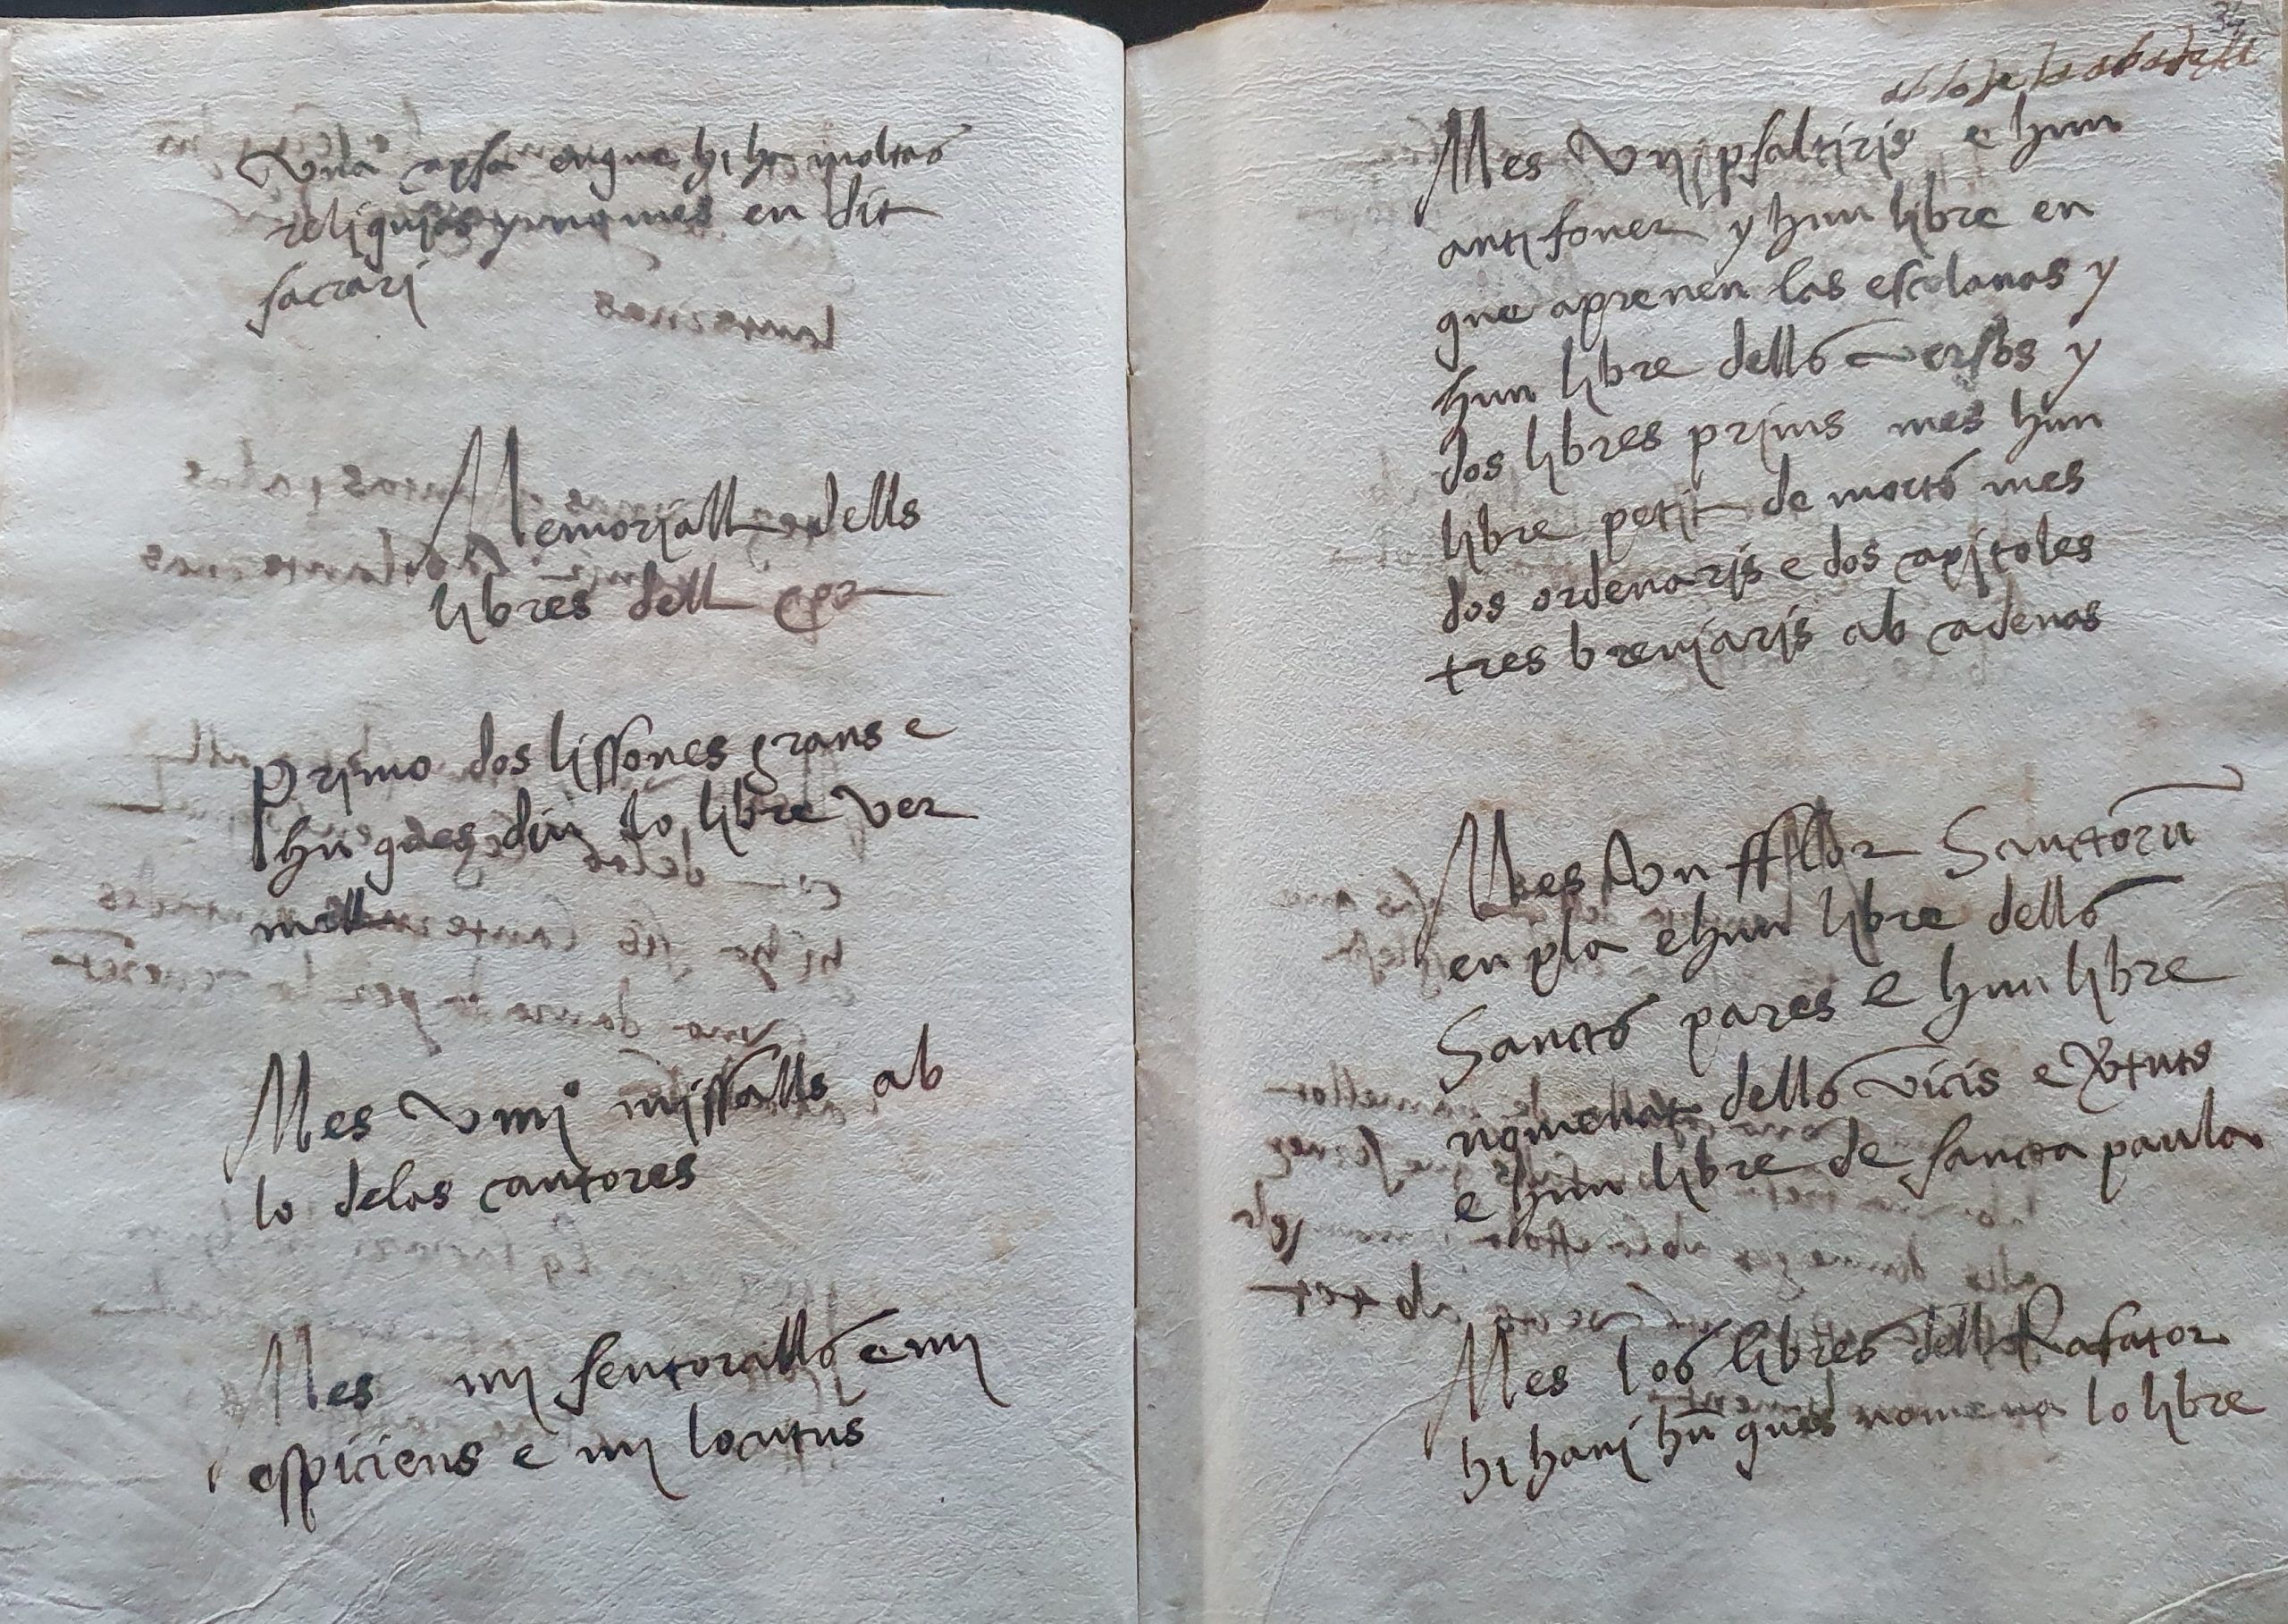 Una capsa en que hi ha moltas
reliquias y no mes en dit
sacrari
Memoriall dells
libres dell cor
Primo dos lissones grans e
hu ques diu lo libre ver
mell
Mes viiij missalls ab
lo de las cantores
Mes iiij sentoralls e iiij
aspiciens e iiij locutus
Mes vij psaltiris e hun
antifoner y hun libre en
que aprenen las escolanas y
hun libre dells versos y
dos libres prims mes hun
libre petit de morts mes
dos ordenaris e dos capitoles
tres breviaris ab cadenas
Mes un fflor Sanctoru
en pla e hun libre dells
Sancts pares e hun libre
nomenat dells vicis e vtuts
e hun libre de sancta paula
Mes los libres dell Rafator
hi hani hu ques nomena lo libre